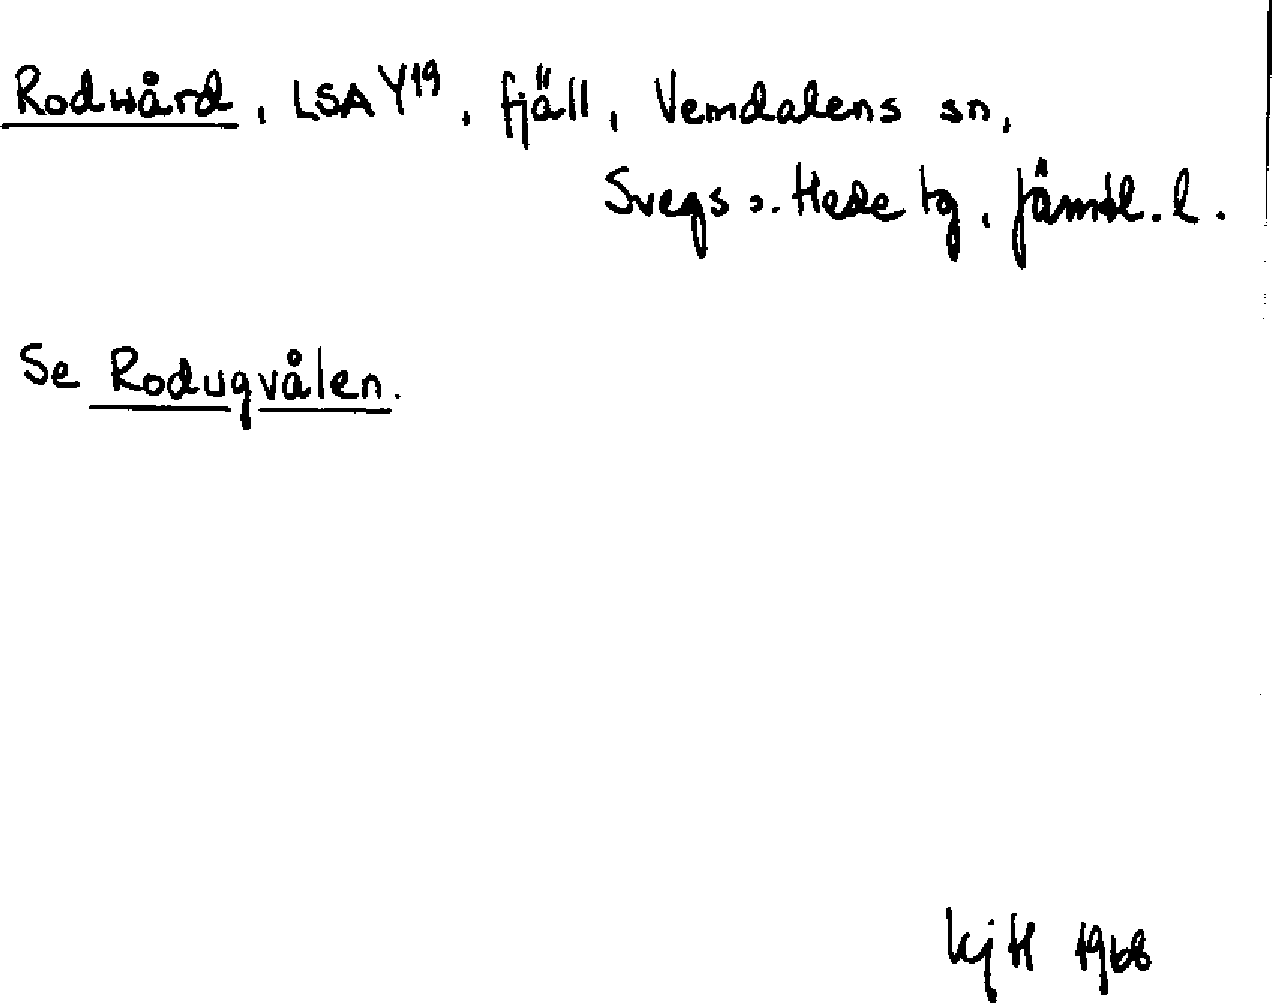 Rodwård, LSA Y19, fjäll, Vemdalens sn,
Svegs o. Hede tg, Jämtl. l.
Se Rodugvålen.
KjH 1968